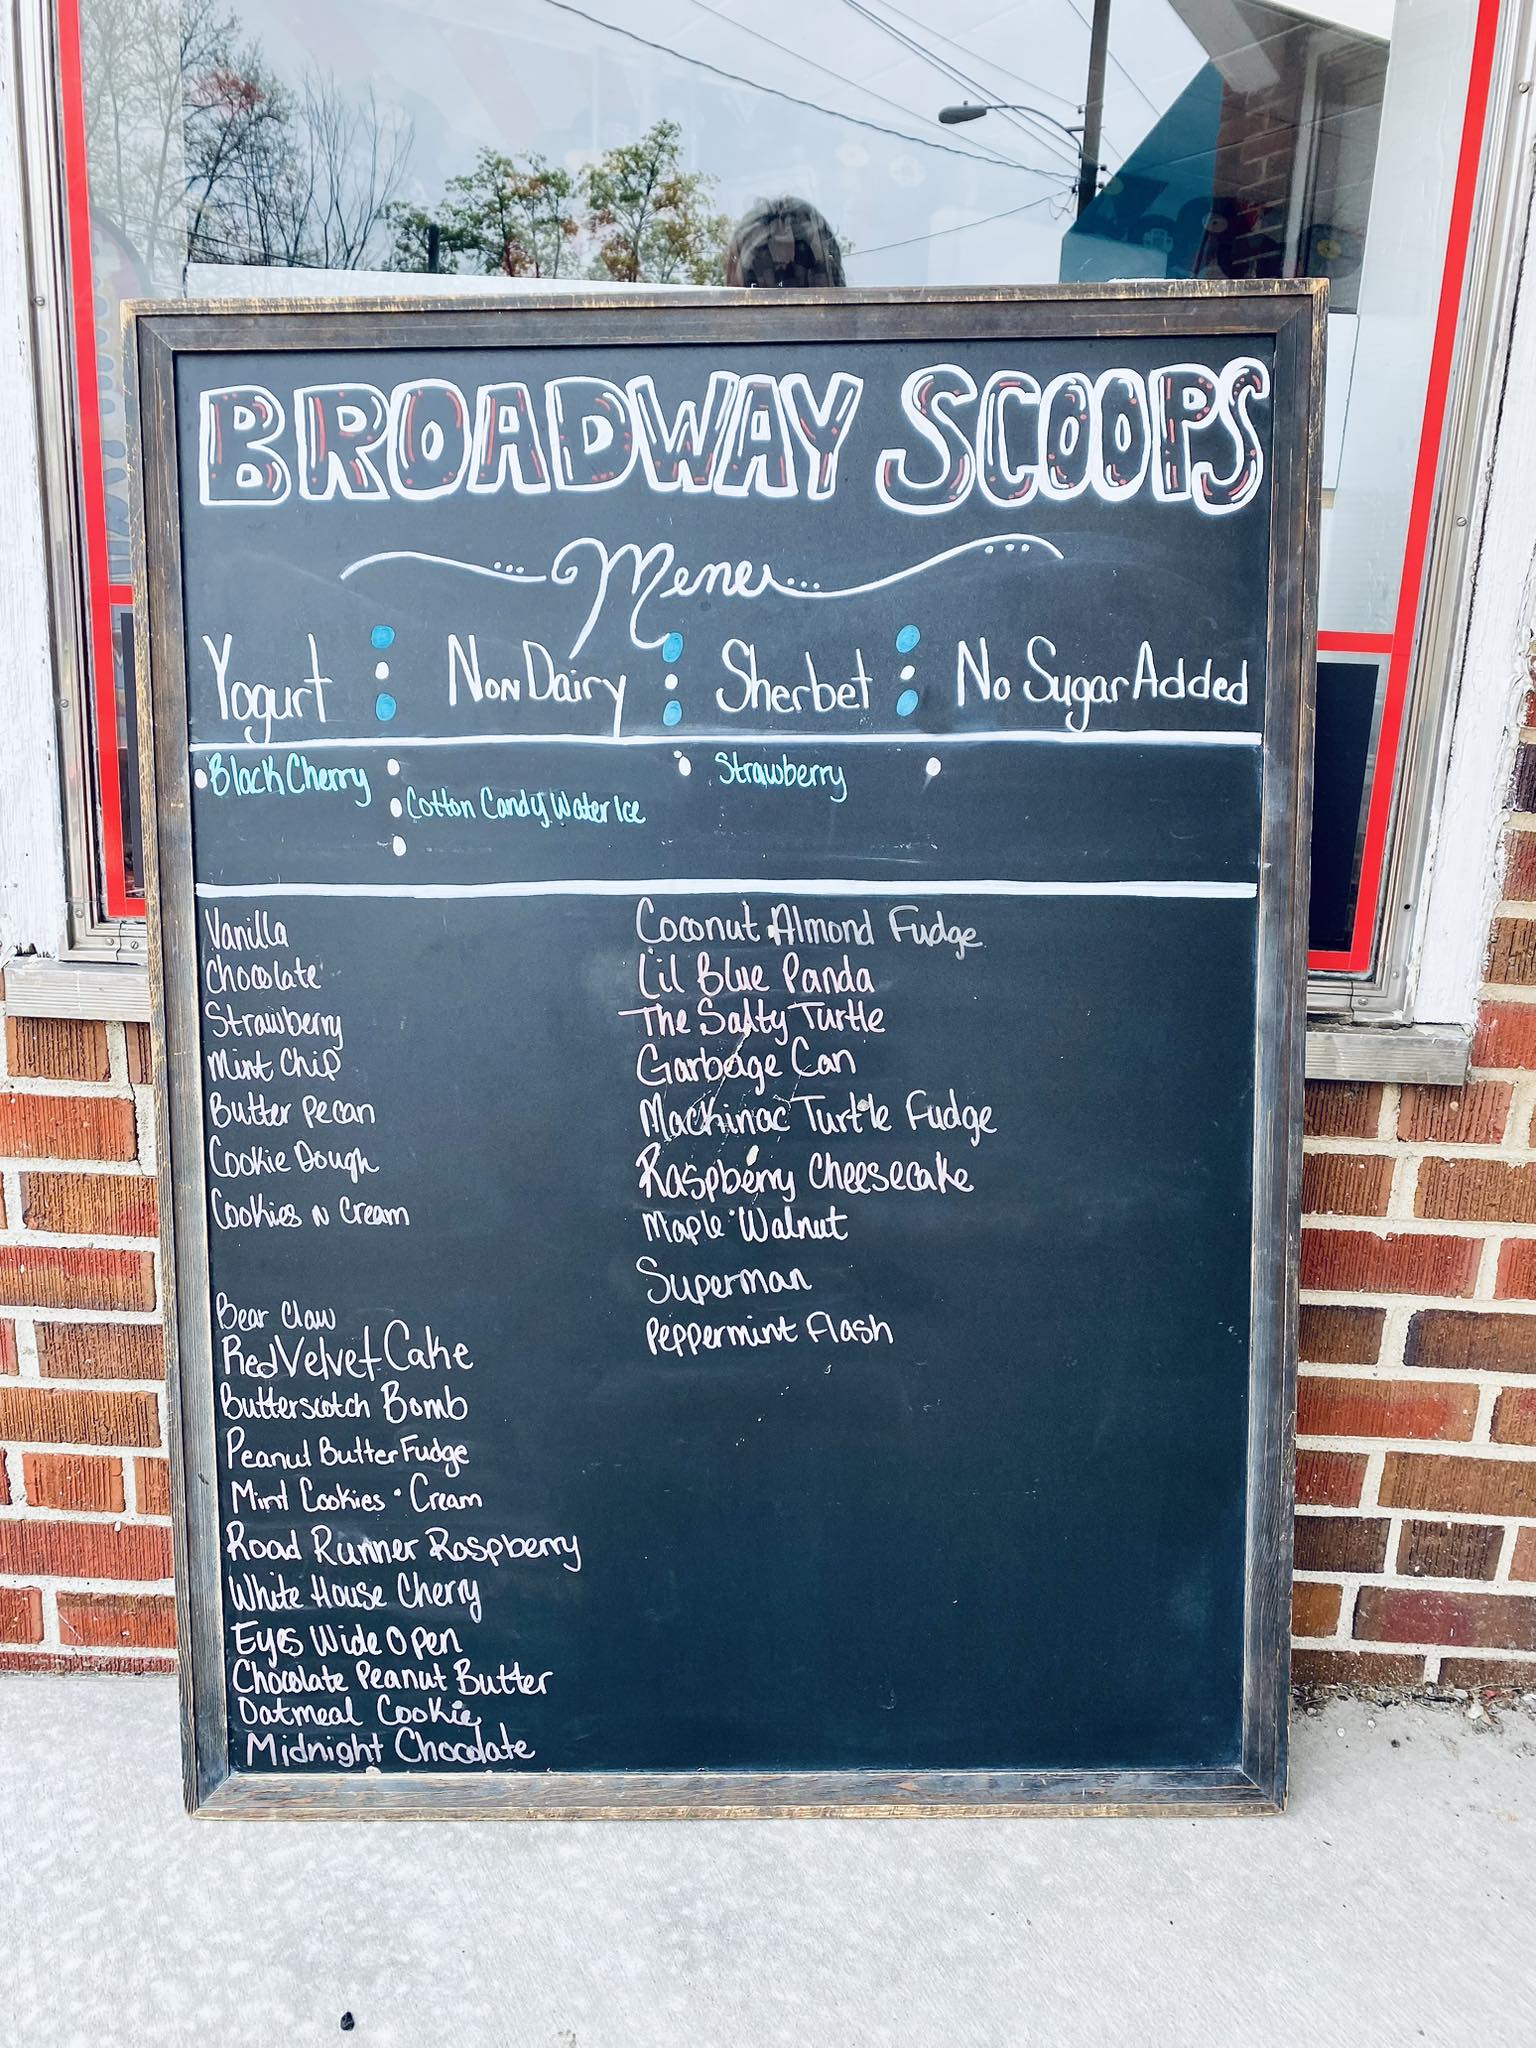 BROADWAY SCOOPS
Menu
Yogurt Non Dairy Sherbet No Sugar Added
Black Cherry Strawberry
Cotton Candy Water Ice
Vanilla
Chocolate
Strawberry
Mint Chip
Butter Pecan
Cookie Dough
Cookies N Cream
Bear Claw
Red Velvet Cake
Butterscotch Bomb
Peanut Butter Fudge
Mint Cookies · Cream
Road Runner Raspberry
White House Cherry
Eyes Wide Open
Chocolate Peanut Butter
Oatmeal Cookie
Midnight Chocolate
Coconut Almond Fudge
Lil Blue Panda
The Salty Turtle
Garbage Can
Mackinac Turtle Fudge
Raspberry Cheesecake
Maple Walnut
Superman
Peppermint Flash